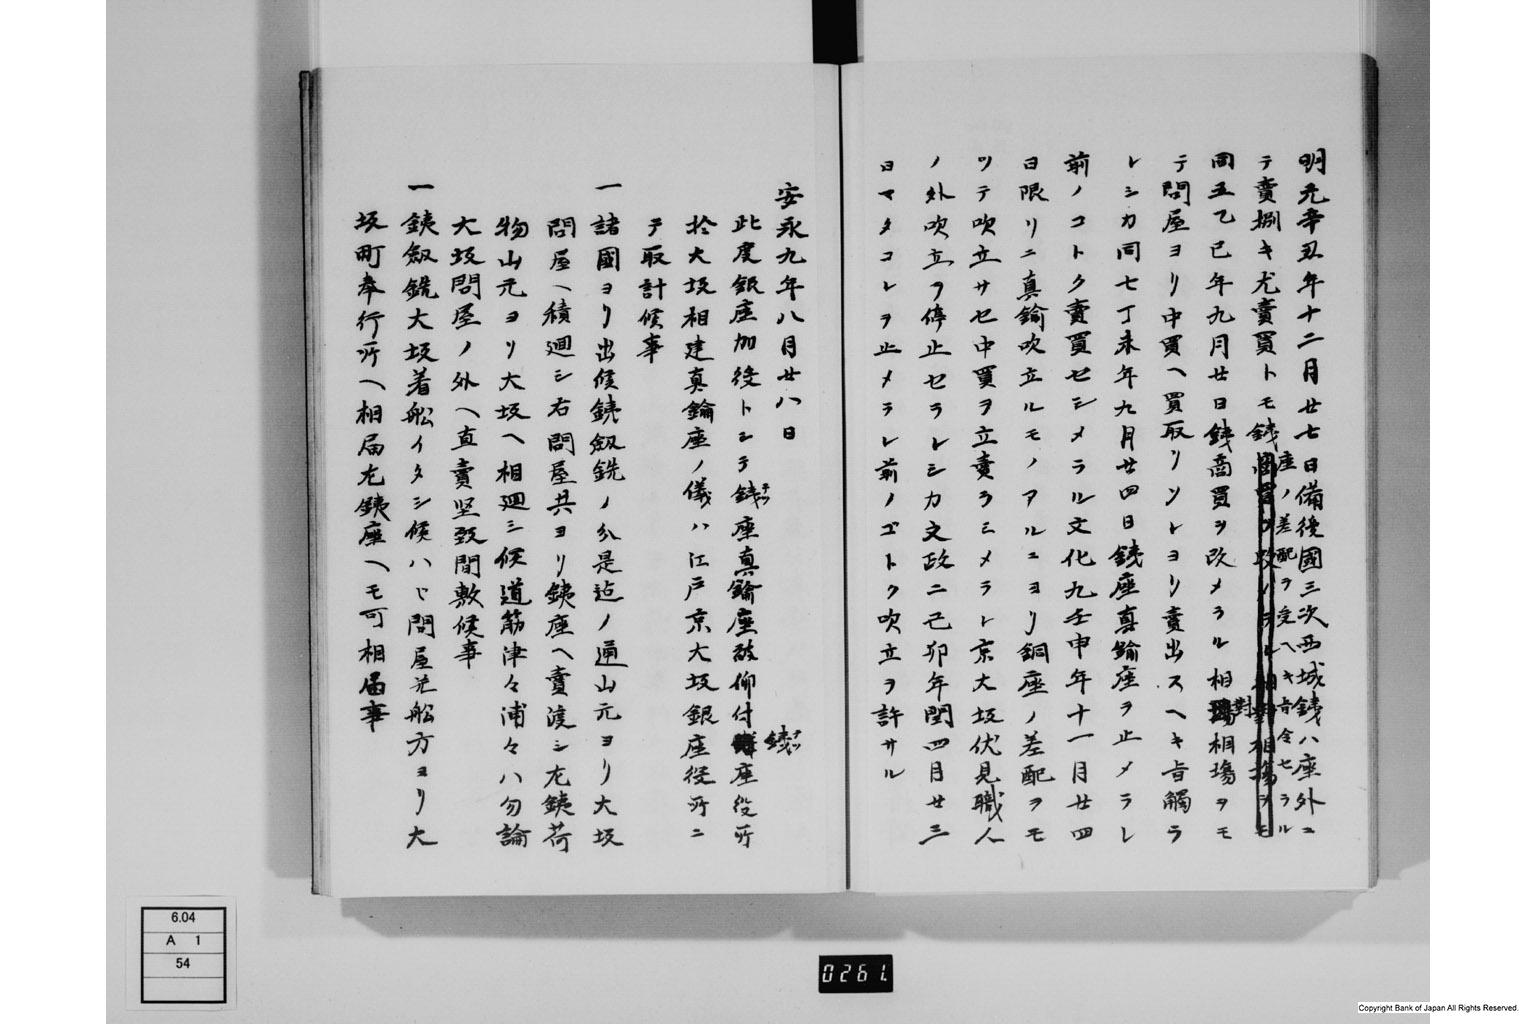 明元辛丑年十二月廿七日備後國三次西城銕ハ座外ニ
テ賣捌キ尤賣買トモ銕座ノ差配ヲ受ヘキ旨令セラル
同五乙巳年九月廿日銕商買ヲ改メラル相對相塲ヲモ
テ問屋ヨリ中買ヘ買取リソレヨリ賣出スヘキ旨觸ラ
レシカ同七丁未年九月廿四日銕座真鍮座ヲ止メラレ
前ノコトク賣買セシメラル文化九壬申年十一月廿四
日限リニ真鍮吹立ルモノアルニヨリ銅座ノ差配ヲモ
ツテ吹立サセ中買ヲ立賣ラシメラレ京大坂伏見職人
ノ外吹立ヲ停止セラレシカ文政二己卯年閏四月廿三
日マタコレヲ止メラレ前ノゴトク吹立ヲ許サル
安永九年八月廿八日
此度銀座加役トシテ銕座真鍮座被仰付銕座役所
於大坂相建真鍮座ノ儀ハ江戸京大坂銀座役所ニ
テ取計候事
一 諸國ヨリ出候銕釼銑ノ分是迠ノ通山元ヨリ大坂
問屋ヘ積廻シ右問屋共ヨリ銕座ヘ賣渡シ尤銕荷
物山元ヨリ大坂ヘ相廻シ候道筋津々浦々ハ勿論
大坂問屋ノ外ヘ直賣堅致間敷候事
一 銕釼銑大坂着舩イタシ候ハヾ問屋并舩方ヨリ大
坂町奉行所ヘ相届尤銕座ヘモ可相届事
6.04
A 1
54
0261.
Copyright Bank of Japan All Rights Reserved.